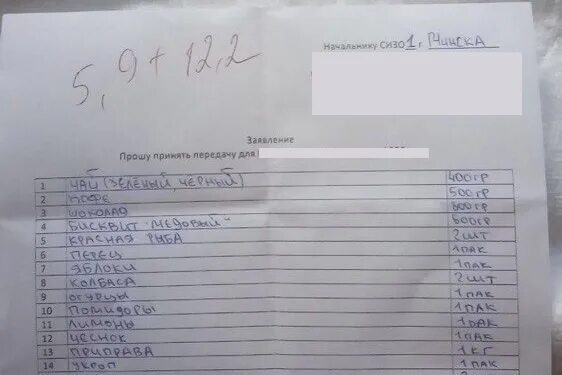 5,9+12,2
Начальнику СИЗО 1 г. Минска
Заявление
Прошу принять передачу для
1 ЧАЙ (ЗЕЛЁНЫЙ, ЧЁРНЫЙ) 400ГР
2 КОФЕ 500ГР
3 ШОКОЛАД 600ГР
4 БИСКВИТ "МЕДОВЫЙ" 600ГР
5 КРАСНАЯ РЫБА 2ШТ
6 ПЕРЕЦ 1ПАК
7 ЯБЛОКИ 1ПАК
8 КОЛБАСА 2ШТ
9 ОГУРЦЫ 1ПАК
10 ПОМИДОРЫ 1ПАК
11 ЛИМОНЫ 1ПАК
12 ЧЕСНОК 1ПАК
13 ПРИПРАВА 1КГ
14 УКРОП 1ПАК